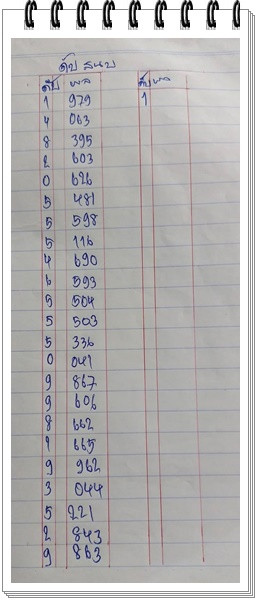 ดับ สนบ
ดับ ผล ดับ ผล
1 979 1
4 063
8 395
2 603
0 626
5 481
5 598
5 116
4 690
6 593
5 504
5 503
5 336
0 041
9 867
9 606
8 662
1 665
9 962
3 044
5 221
2 843
9 863